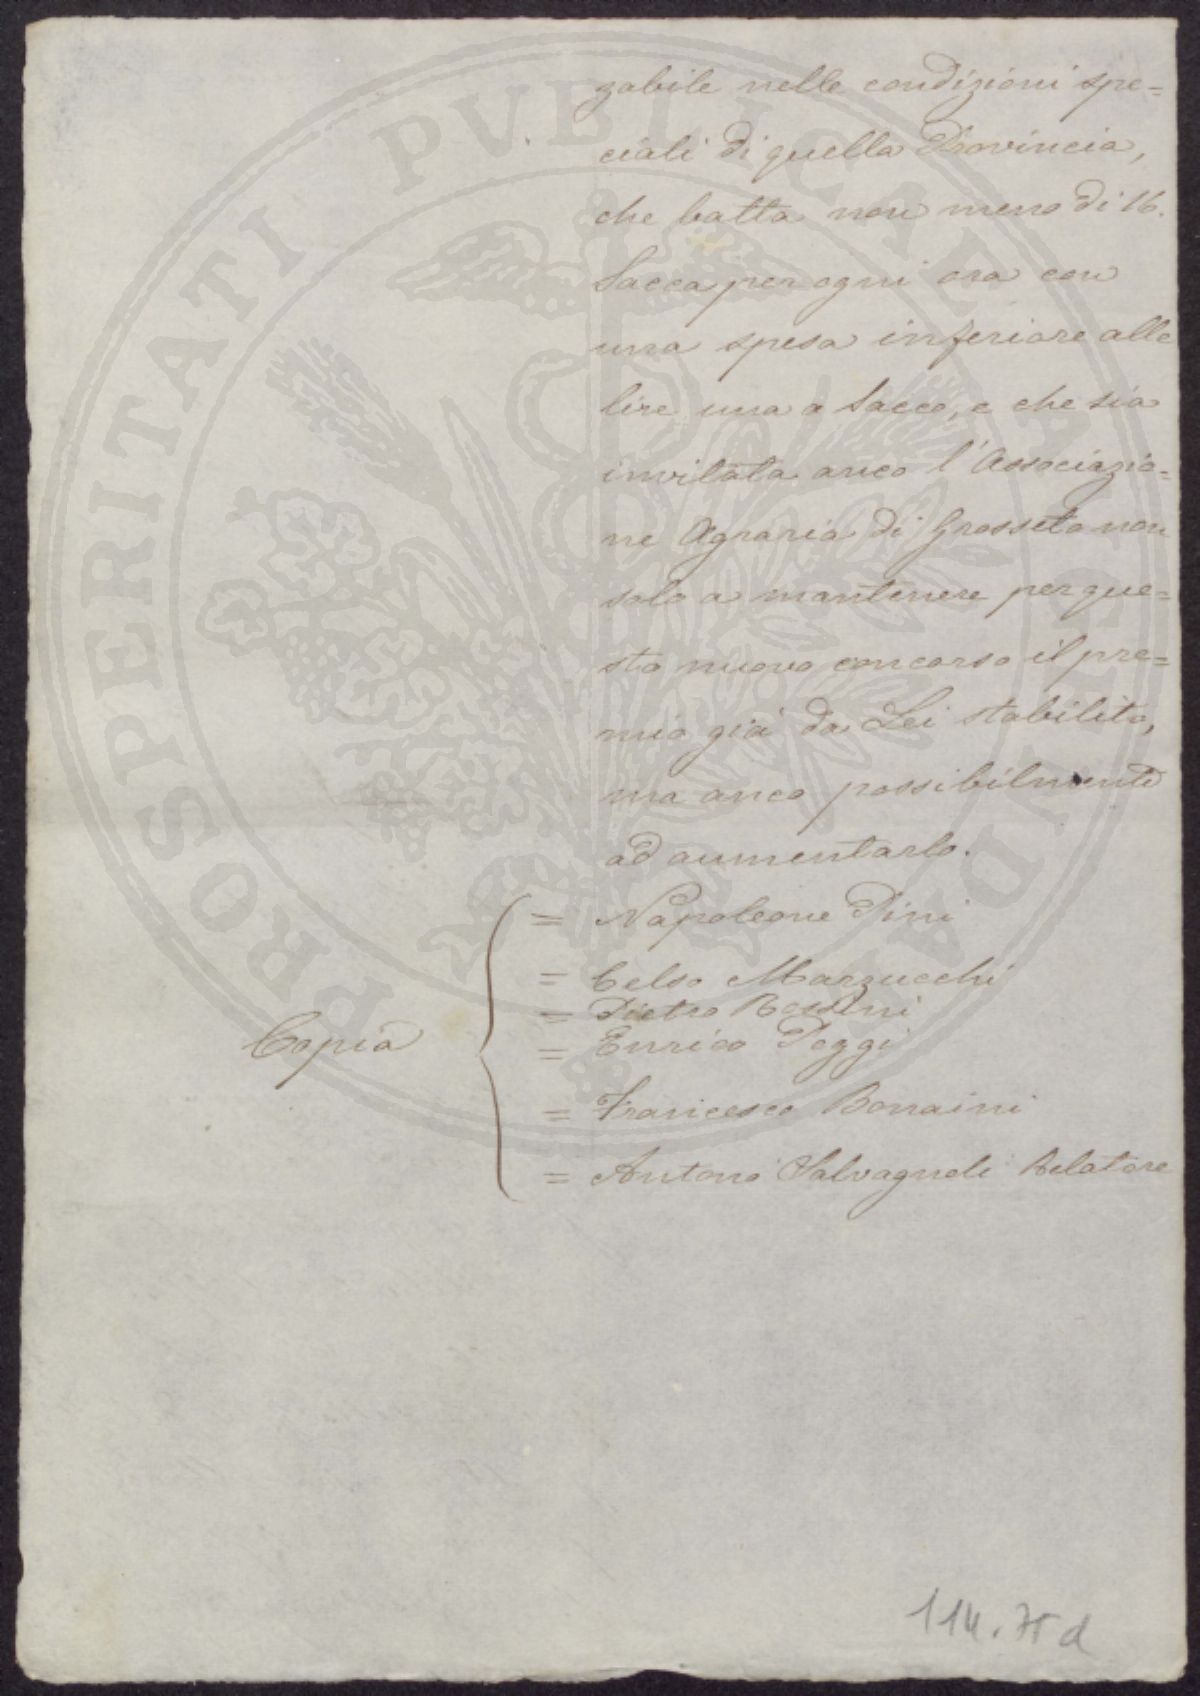 zabile nelle condizioni spe=
ciali di quella Provincia,
che batta non meno di 16.
Sacca per ogni ora con
una spesa inferiore alle
lire una a Sacco, e che sia
invitata anco l'Associazio=
ne Agraria di Grosseto non
solo a mantenere per que=
sto nuovo concorso il pre=
mio già da Lei stabilito,
ma anco possibilmente
ad aumentarlo.
= Napoleone Pini
= Celso Marzucchi
= Pietro Rossini
Copia
= Enrico Poggi
= Francesco Bonaini
= Antonio Salvagnoli Relatore
114.75 d
PROSPERITATI PVBLICAE AVGENDAE